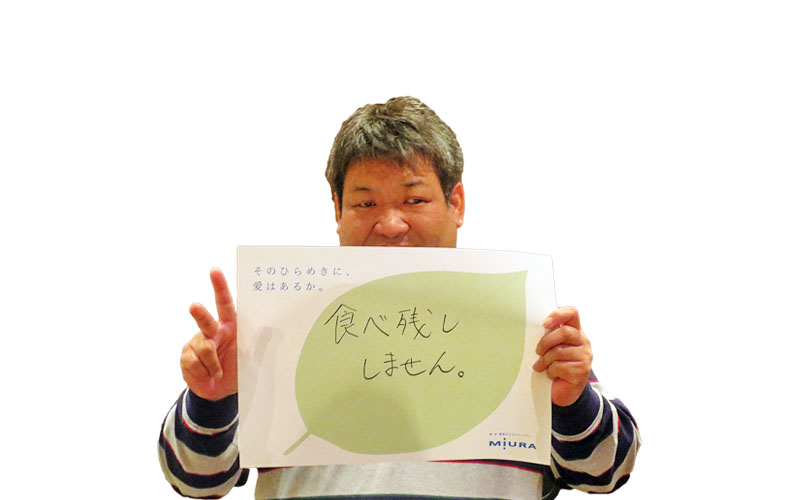 そのひらめきに、
愛はあるか。
食べ残し
しません。
MIURA